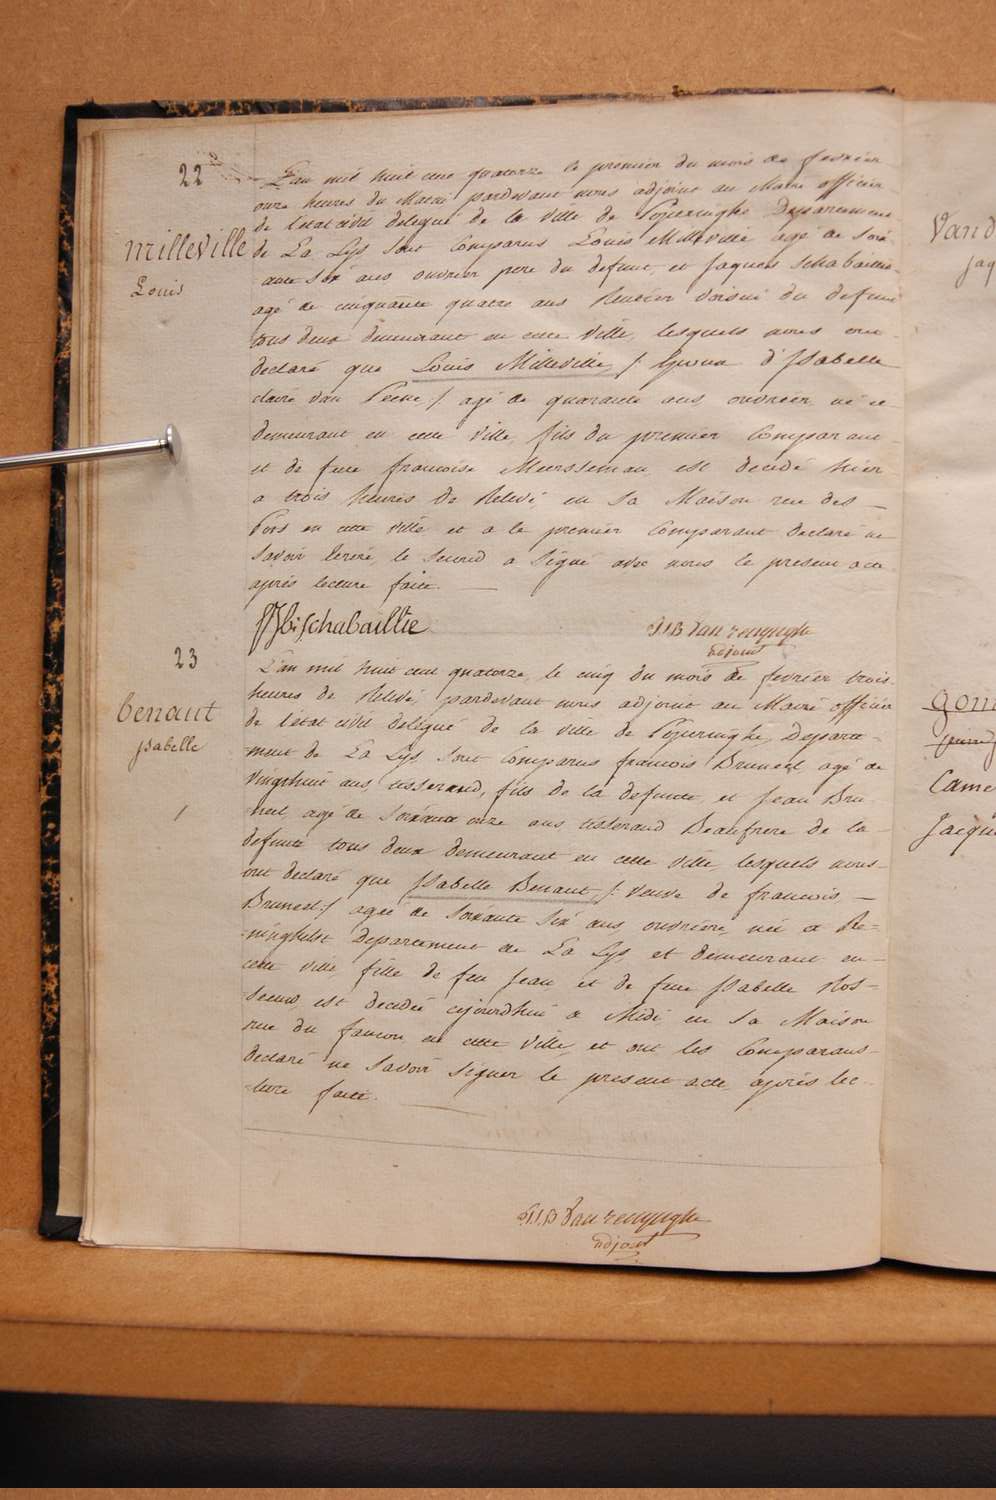 22
L'an mil huit cens quatorze le premier du mois de fevrier
onze heures du Matin pardevant nous adjoint au Maire officier
de l'état civil delegué de la ville de Poperinghe Departement
Milleville
de La Lys sont Comparus Louis Milleville agé de soix-
Louis
ante six ans ouvrier pere du defunt, et Jaques Schabaillie
agé de cinquante quatre ans Rentier voisin du defunt
tous deux demeurant en cette ville, lesquels nous ont
declaré que Louis Milleville /: Epoux d'Isabelle
claire van Peene :/ agé de quarante ans, ouvrier né et
demeurant en cette ville, fils du premier Comparant
et de feue francoise Meersseman, est decidé hier
a trois heures de Relevé, en sa Maison rue des
Pots en cette ville et a le premier Comparant declaré ne
savoir ecrire, le second a signé avec nous le present acte
après lecture faite.
Schabaillie
P.J.B Van renynghe
adjoint
23
L'an mil huit cent quatorze, le cinq du mois de fevrier trois
heures de Relevé, pardevant nous adjoint au Maire officier
benaut
de l'état civil delégué de la ville de Poperinghe, Departe-
Isabelle
ment de La Lys, sont Comparus francois Bruneel agé de
vingthuit ans, tisserand, fils de la defunte, et Jean Bru-
neel, agé de soixante onze ans tisserand Beaufrere de la
defunte tous deux demeurant en cette ville, lesquels nous
ont declaré que Isabelle Benaut, /: veuve de francois
Bruneel :/ agée de soixante six ans, ouvriere, née a Re-
ninghelst departement de La Lys, et demeurant en
cette ville, fille de feu Jean et de feue Isabelle Ros-
seeuw, est decidée cejourdhui a Midi en sa Maison
rue du faucon, en cette ville, et ont les Comparans
declaré ne savoir signer le present acte, après lec-
ture faite.
P.J.B Van renynghe
adjoint
Vand
Jaq
gom
Came
Jacqu